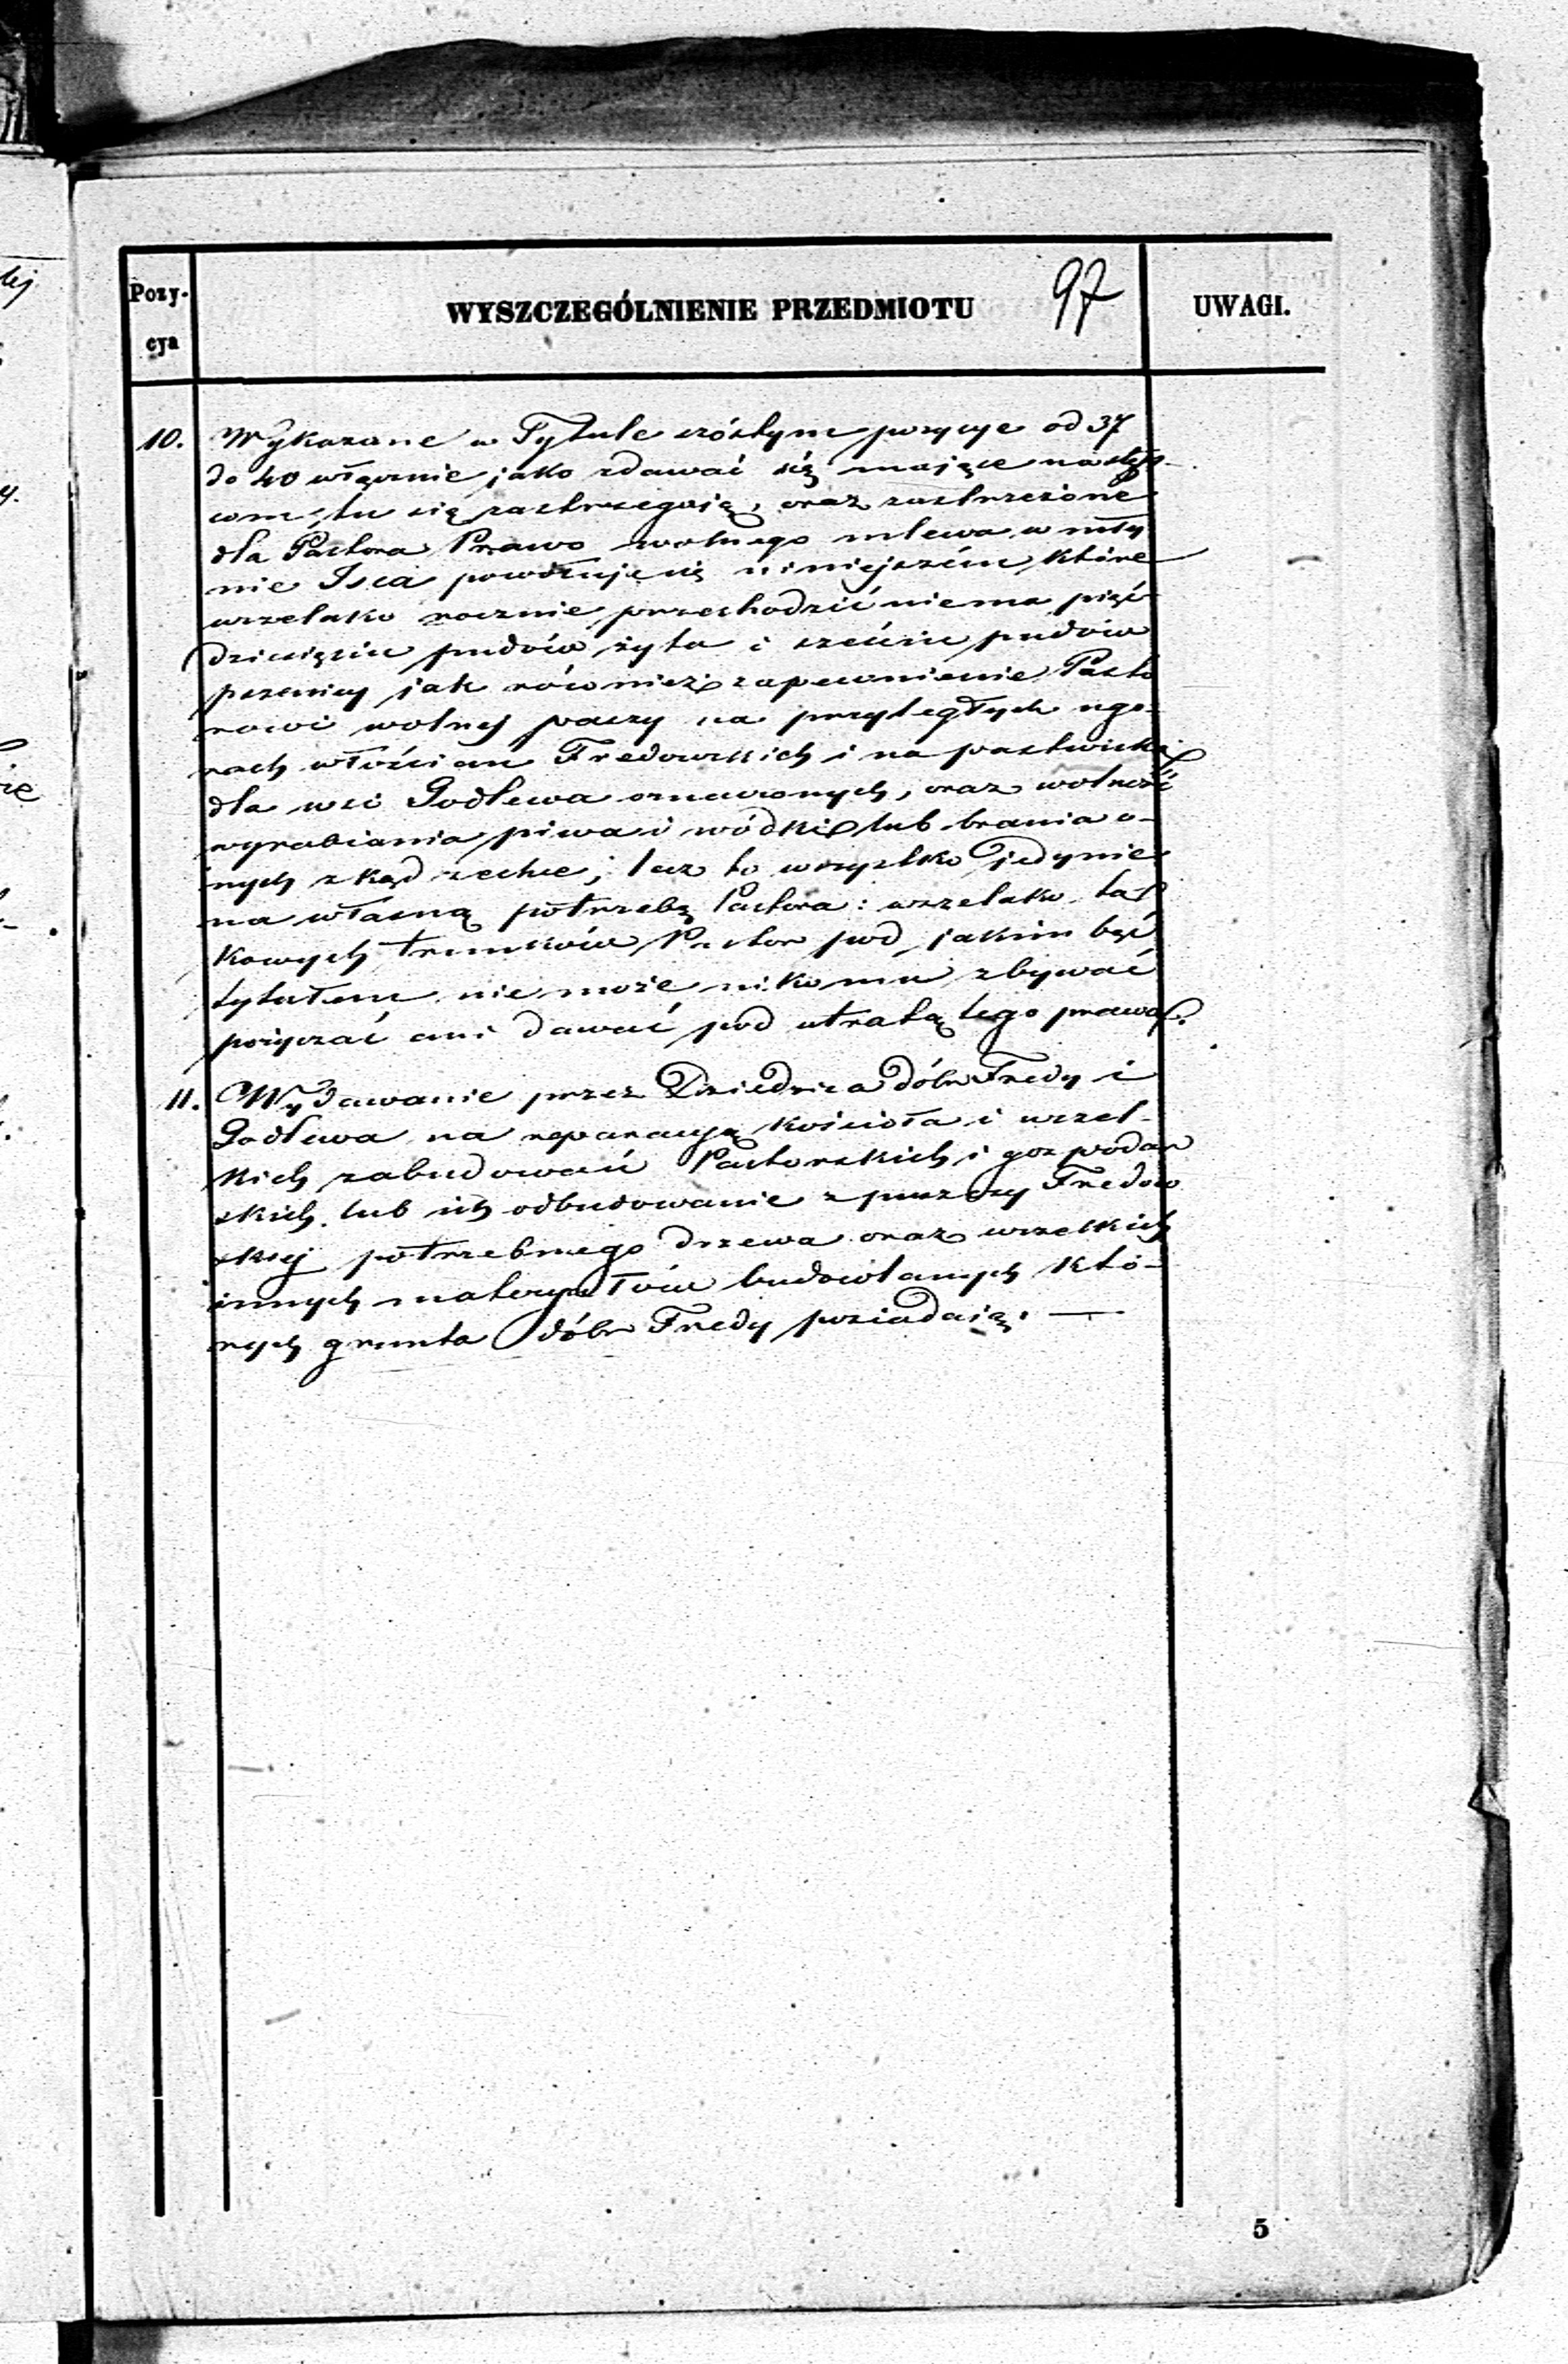 Pozy-
cya
WYSZCZEGÓLNIENIE PRZEDMIOTU
97
UWAGI.
10. Wykazane w Tytule szóstym pozycye od 37
do 40 włącznie jako zdawać się mające następ-
com, tu się zastrzegają, oraz zastrzeżone
dla Pastora Prawo wolnego mlewa w mły
nie powołuje się niniejszém, które
wszelako rocznie przechodzić niema pięć-
dziesięciu pudów żyta i sześciu pudów
pszenicy jak również zapewnienie Pasto
rowi wolnej paszy na przyległych ugo-
rach włościan Fredowskich i na pastwisku
dla wsi Godlewa oznaczonych, oraz wolność
wyrabiania piwa i wódki lub brania o-
nych zkąd zechce; lecz to wszystko jedynie
na własną potrzebę Pastora: wszelako ta
kowych trunków Pastor pod jakim bąć
tytułem nie może nikomu zbywać
pożyczać ani dawać pod utratą tego prawa.
11. Wydawanie przez Dziedzica dóbr Fredy i
Godlewa na reparacyą kościoła i wszel-
kich zabudowań Pastorskich i gospodar
skich lub ich odbudowanie z puszczy Fredow
skiej potrzebnego drzewa oraz wszelkich
innych materyałów budowlanych któ-
rych grunta dóbr Fredy posiadają. —
5